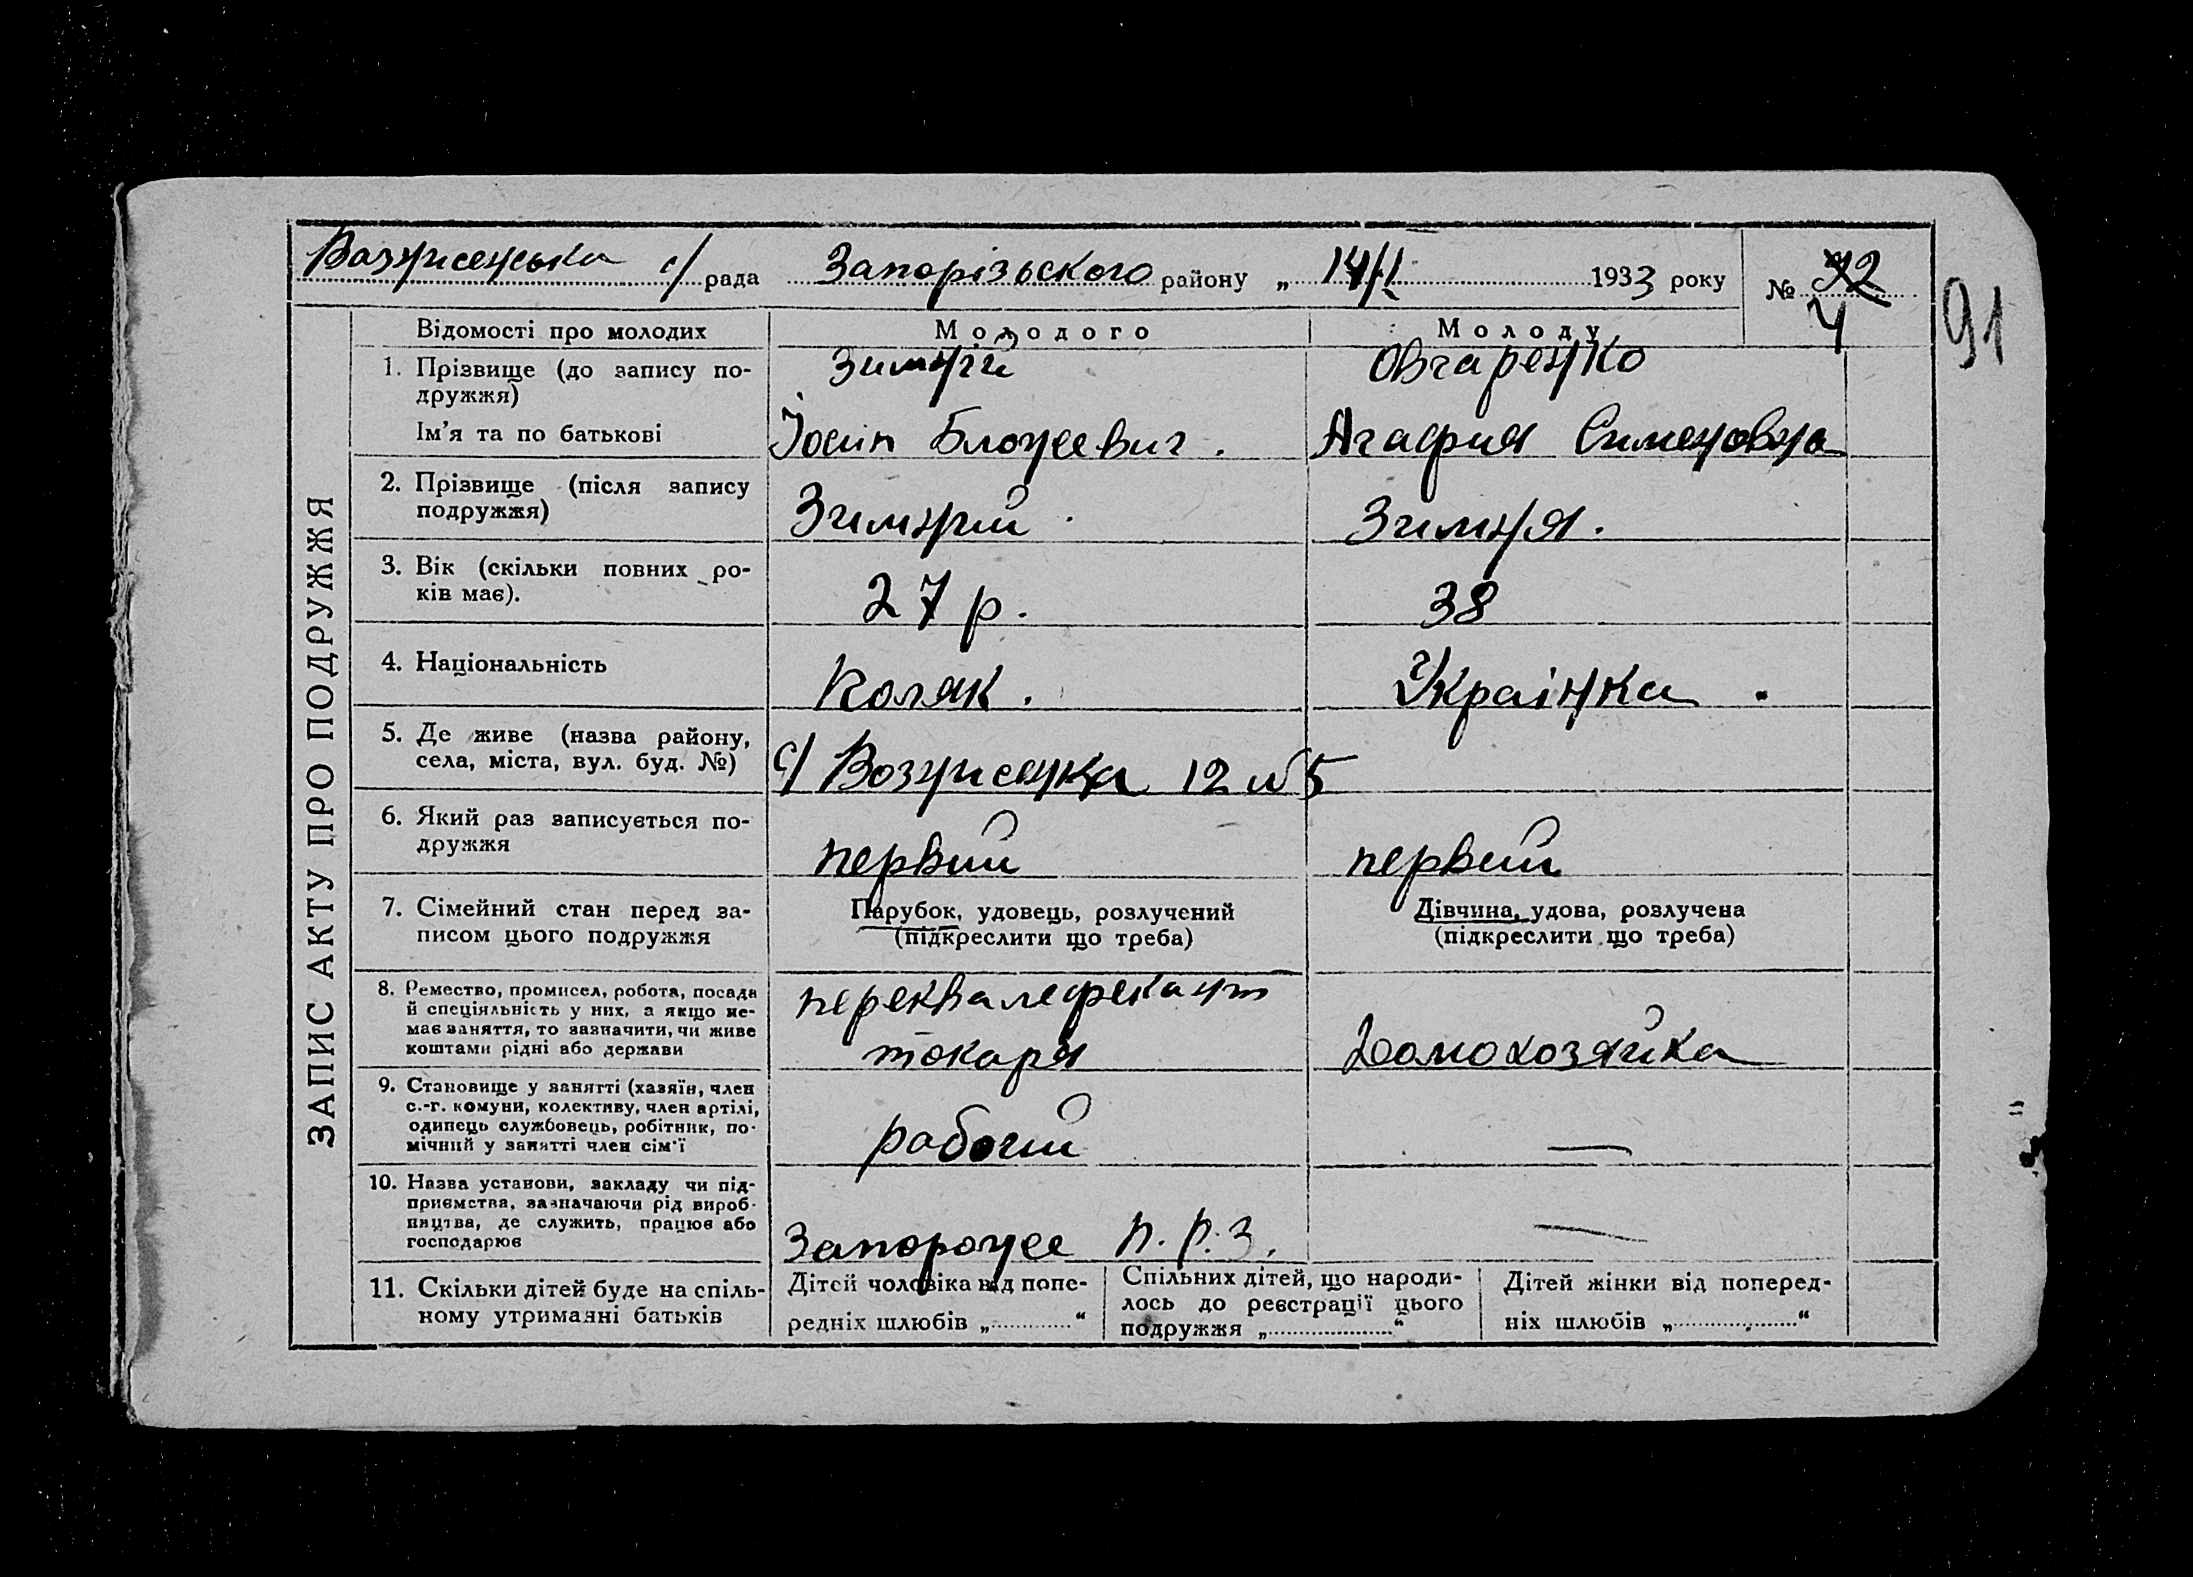 Вознисенська с/рада Запорізького району „ 14/I 1933 року № 72
4
91
ЗАПИС АКТУ ПРО ПОДРУЖЖЯ
Відомості про молодих Молодого Молоду
1. Прізвище (до запису по-
дружжя) Зимний Овчаренко
Ім’я та по батькові Йосип Агафия Сименовна
2. Прізвище (після запису
подружжя) Зимний Зимня.
3. Вік (скільки повних ро-
ків має). 27 р. 38
4. Національність Поляк. Українка.
5. Де живе (назва району,
села, міста, вул. буд. №) с/ Вознисенка 12 № 5
6. Який раз записується по-
дружжя первий первий
7. Сімейний стан перед за-
писом цього подружжя
Парубок, удовець, розлучений
(підкреслити що треба)
Дівчина, удова, розлучена
(підкреслити що треба)
8. Ремество, промисел, робота, посада
й спеціяльність у них, а якщо не-
має заняття, то зазначити, чи живе
коштами рідні або держави
переквалефекант
токаря
Домохозяйка
9. Становище у занятті (хазяїн, член
с.-г. комуни, колективу, член артілі,
одинець службовець, робітник, по-
мічний у занятті член сім’ї
рабочий —
10. Назва установи, закладу чи під-
приємства, зазначаючи рід вироб-
ництва, де служить, працює або
господарює
П.Р.З. —
11. Скільки дітей буде на спіль-
ному утриманні батьків
Дітей чоловіка від попе-
редніх шлюбів „ “
Спільних дітей, що народи-
лось до реєстрації цього
подружжя „ “
Дітей жінки від поперед-
ніх шлюбів „ “